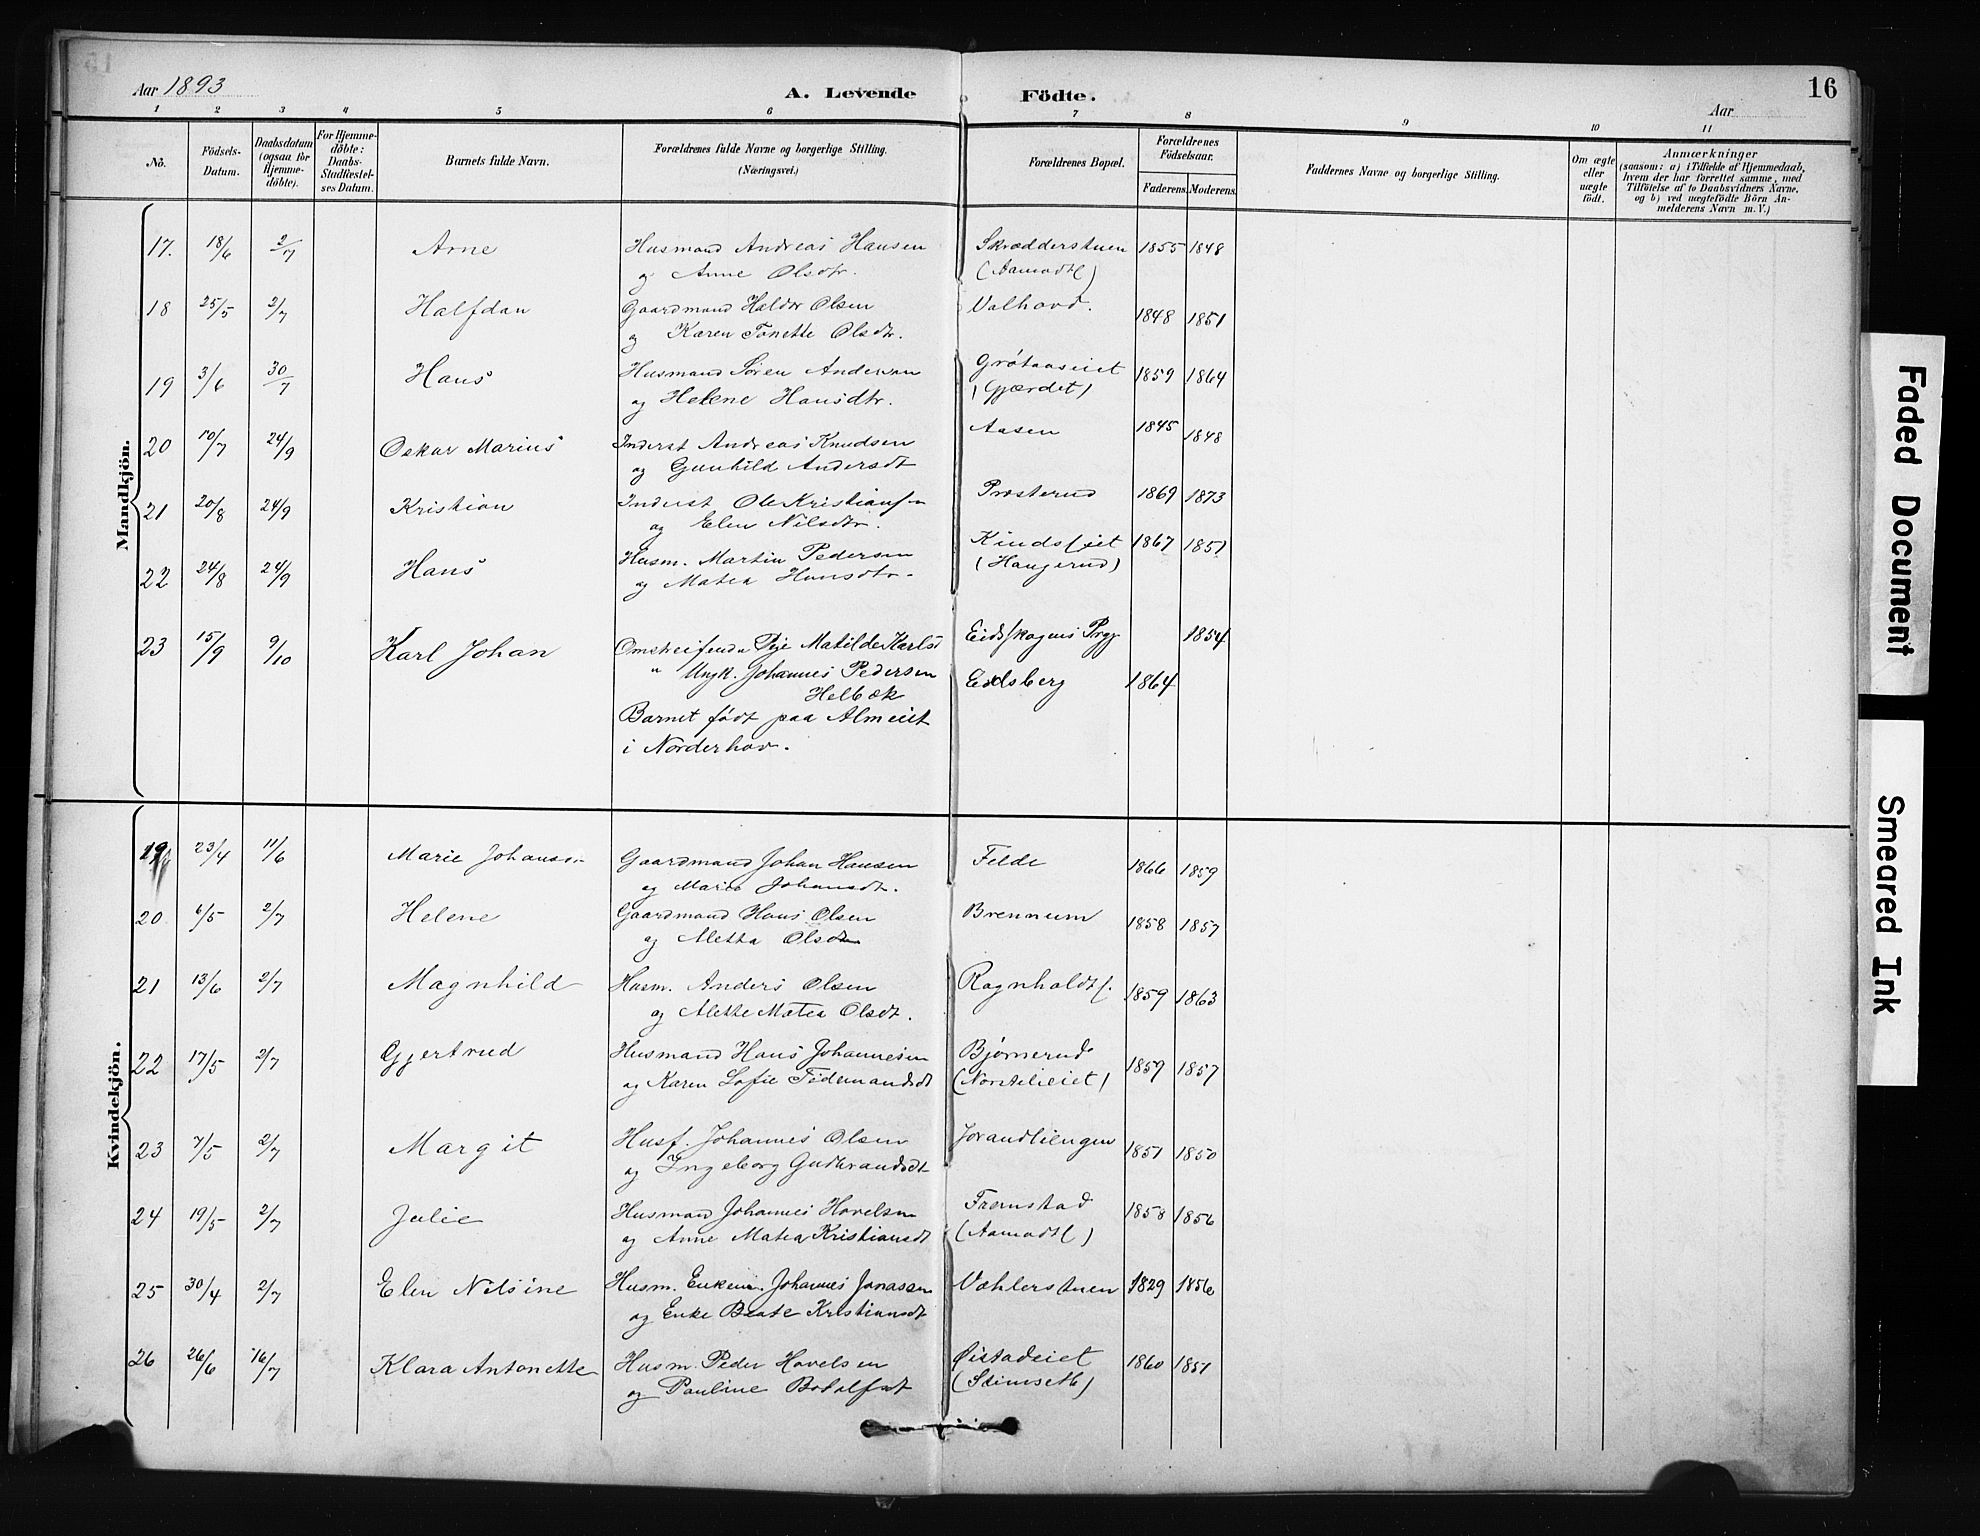 Aar 1893
A. Levende Födte.
16
Aar
1 2 3 4 5 6 7 8 9 10 11
No.
Födsels-Datum.
Daabsdatum (ogsaa for Hjemme-döbte).
For Hjemme-döbte: Daabs-Stadfæstel-ses Datum.
Barnets fulde Navn.
Forældrenes fulde Navne og borgerlige Stilling. (Næringsvei.)
Forældrenes Bopæl.
Forældrenes Födselsaar.
Faderens. Moderens.
Faddernes Navne og borgerlige Stilling.
Om ægte eller uægte födt.
Anmærkninger
(saasom: a) i Tilfælde af Hjemmedaab,
hvem der har forrettet samme, med
Tilföielse af to Daabsvidners Navne.
og b) ved uægtefödte Börn An-
melderens Navn m. V.)
Mandkjön.
17. 18/6 2/7 Arne Husmand Andreas Hansen Skrædderstuen 1855 1848
og Anne Olsdtr. (Aamodt)
18 25/5 2/7 Halfdan Gaardmand Haldor Olsen Valhovd. 1848 1851
og Karen Tonette Olsdtr.
19 3/6 30/7 Hans Husmand Søren Andersen Grøtaaseiet 1859 1864
og Helene Hansdtr. (Gjærdet)
20 10/7 24/9 Oskar Marius Inderst Andreas Knudsen Aasen 1845 1848
og Gunhild Andersdt
21 20/8 24/9 Kristian Inderst Ole Kristiansen Præsterud 1869 1873
og Elen Nilsdtr.
22 24/8 24/9 Hans Husm. Martin Pedersen 1867 1851
og Matea Hansdtr. (Haugerud)
23 15/9 9/10 Karl Johan Omstreifende Pige Matilde Karlsd Eidsskogens Prgj 1854
" Ungk. Johannes Pedersen Eidsberg 1864
Helbæk
Barnet født paa Almeiet
i Norderhov.
Kvindekjön.
19 23/4 11/6 Marie Johansen Gaardmand Johan Hansen Felde 1866 1859
og Marie Johansdt.
20. 6/5 2/7 Helene Gaardmand Hans Olsen Brennum 1858 1857
og Aletta Olsdtr
21 13/6 2/7 Magnhild Husm. Anders Olsen 1859 1863
og Alette Matea Olsdt.
22 17/5 2/7 Gjertrud Husmand Hans Johannesen Bjørnerud 1859 1857
og Karen Sofie Tidemandsdt
23 7/5 2/7 Margit Husf. Johannes Olsen Jorandliengen 1851 1850
og Ingeborg Gudbrandsdt
24 19/5 2/7 Julie Husmand Johannes Hovelsen Fremstad 1858 1856
og Anne Matea Kristiansdt (Aamodt)
25 30/4 2/7 Elen Nilsine Husm. Enkem. Johannes Jonassen Væhlerstuen 1829 1856
og Enke Beate Kristiansdt
26 26/6 16/7 Klara Antonette Husm. Peder Hovelsen Øistadeiet 1860 1851
og Pauline Botolfsdt (Semseth)
Faded Document
Smeared Ink